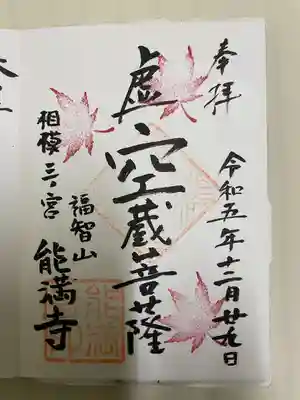 奉拝
令和五年十二月廿九日
虚空蔵菩薩
相模三ノ宮
福智山
能満寺